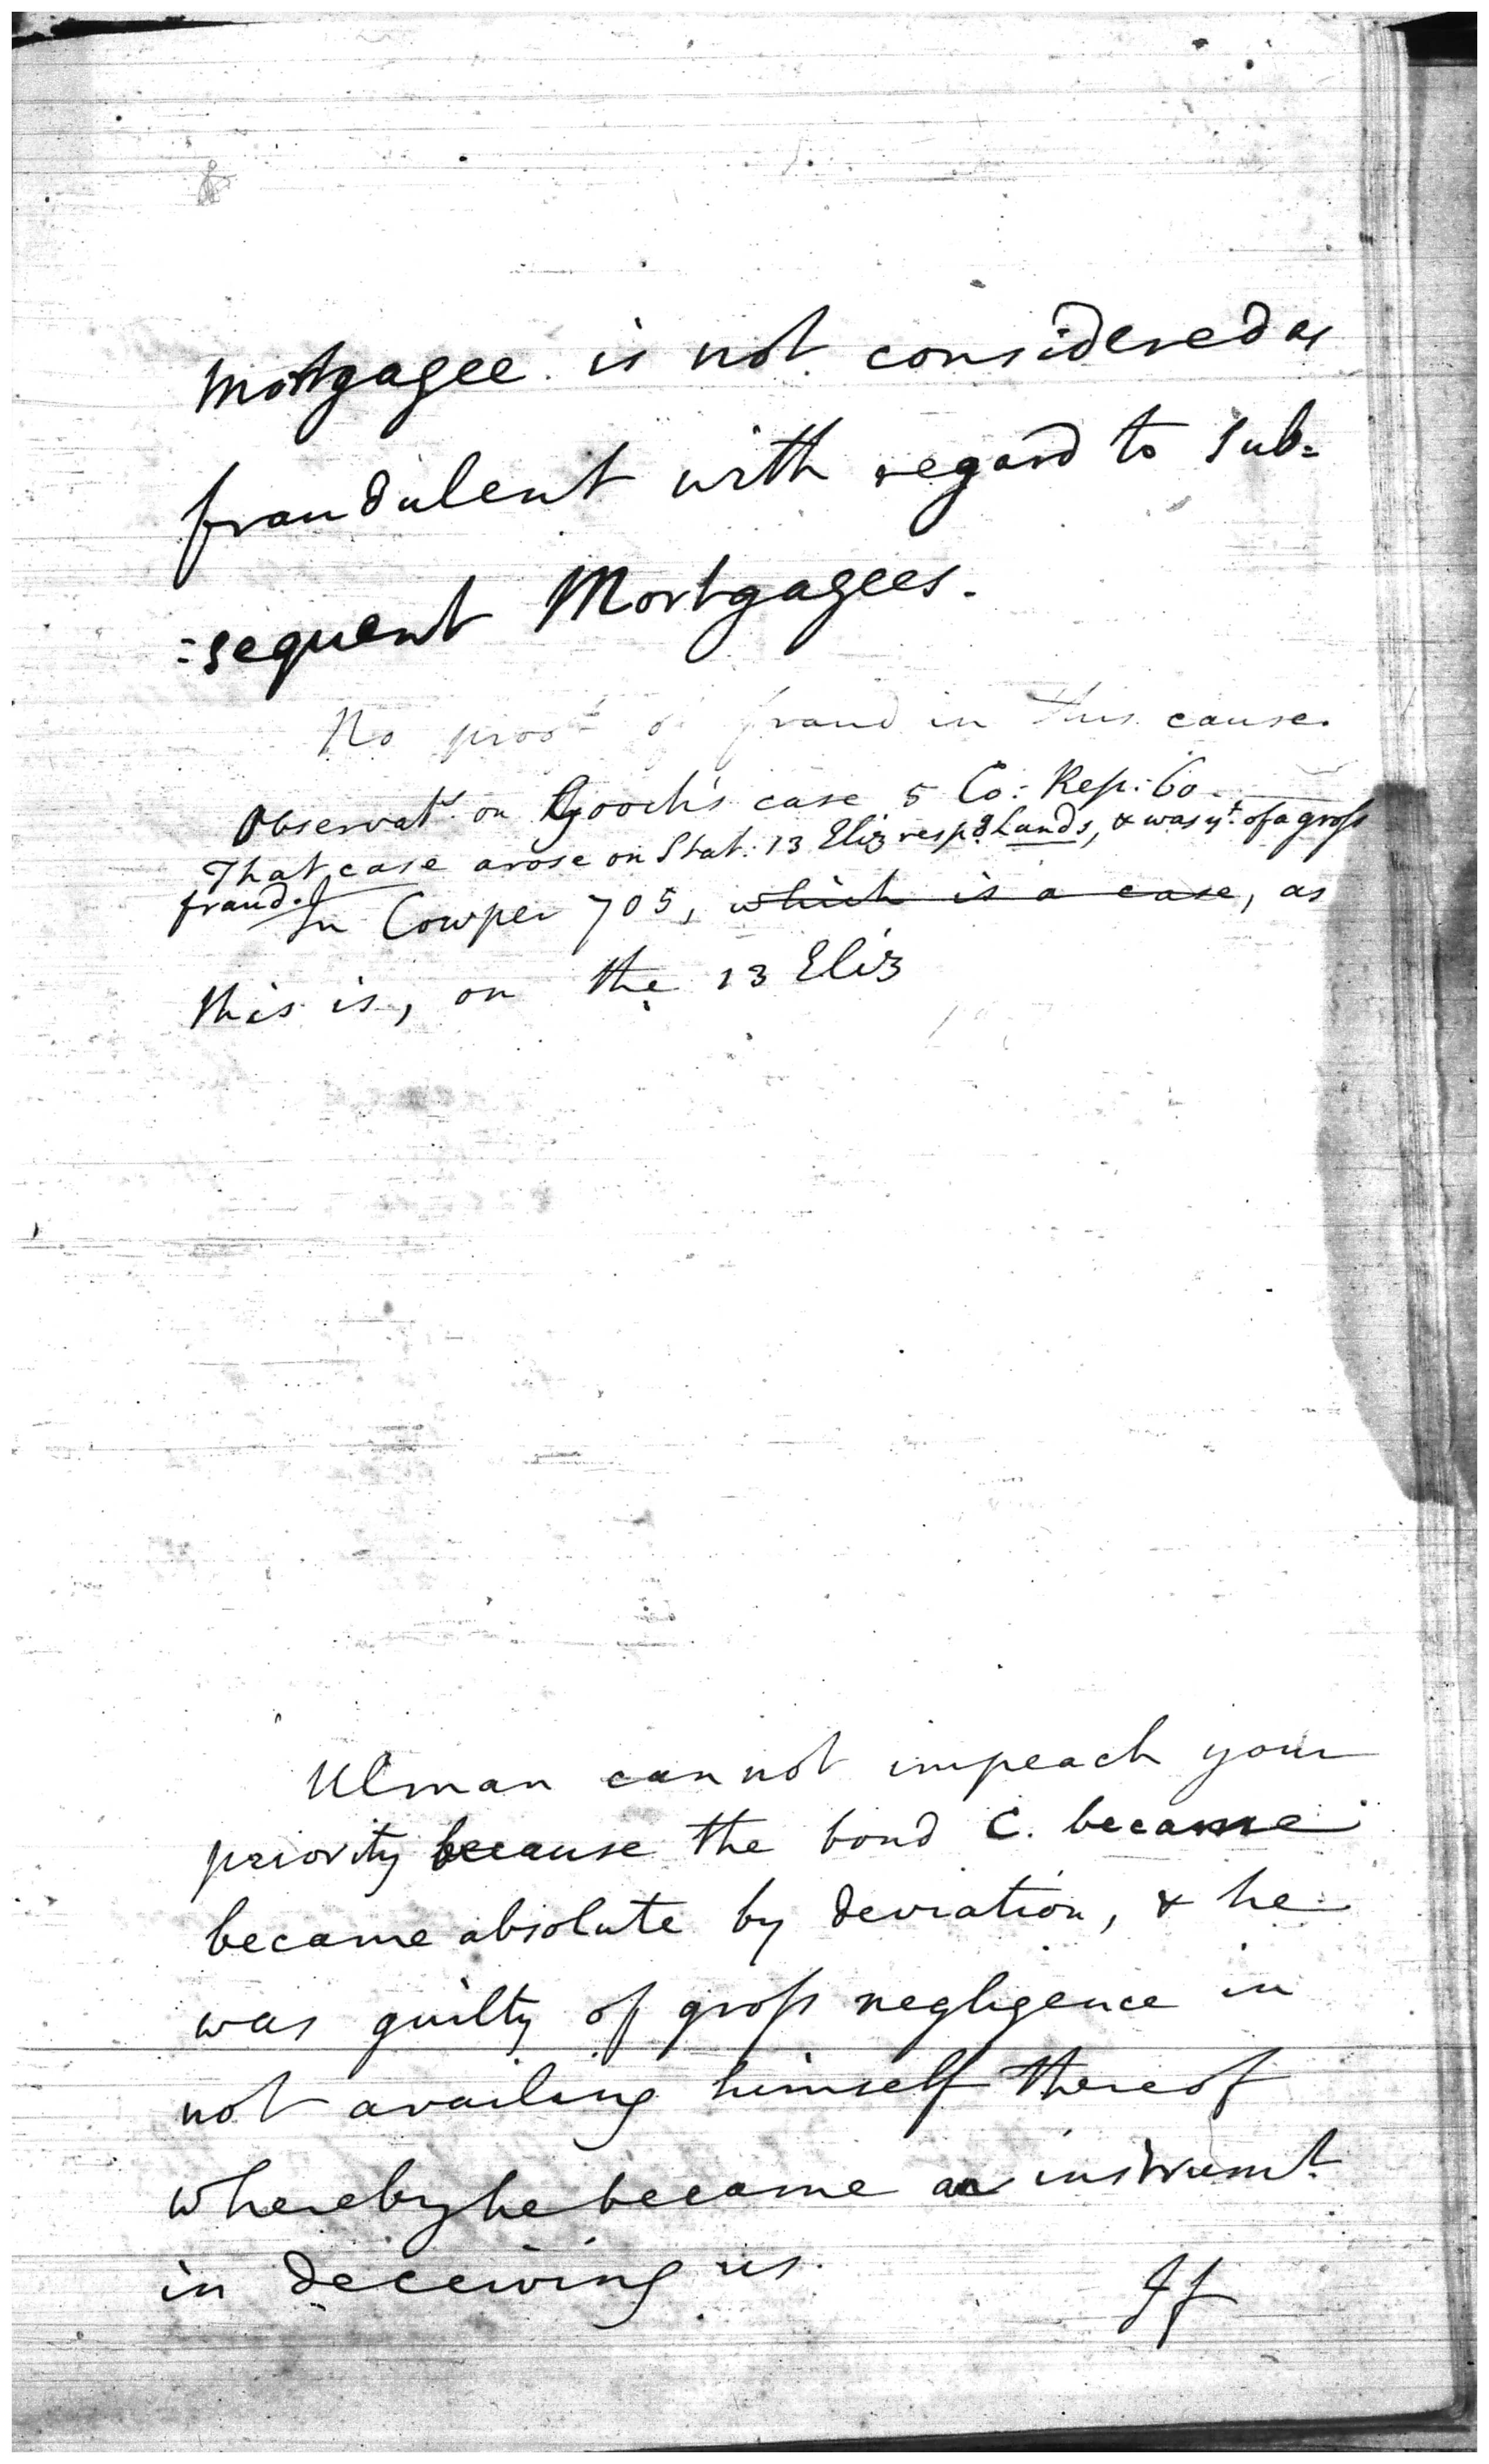 Mortgagee is not considered as
fraudulent with regard to sub=
=sequent Mortgagees.
No proof of fraud in this cause.
Observat.s on Gooch's case 5 Co: Rep: 60.
That case arose on Stat: 13 Eliz resp.g Lands, & was yt. of a gross
fraud. In Cowper 705, which is a case, as
this is, on the 13 Eliz
Ulman cannot impeach your
priority because the bond C. became
became absolute by deviation, & he
was guilty of gross negligence in
not availing himself thereof
whereby he became an instrumt.
in deceiving us.
If